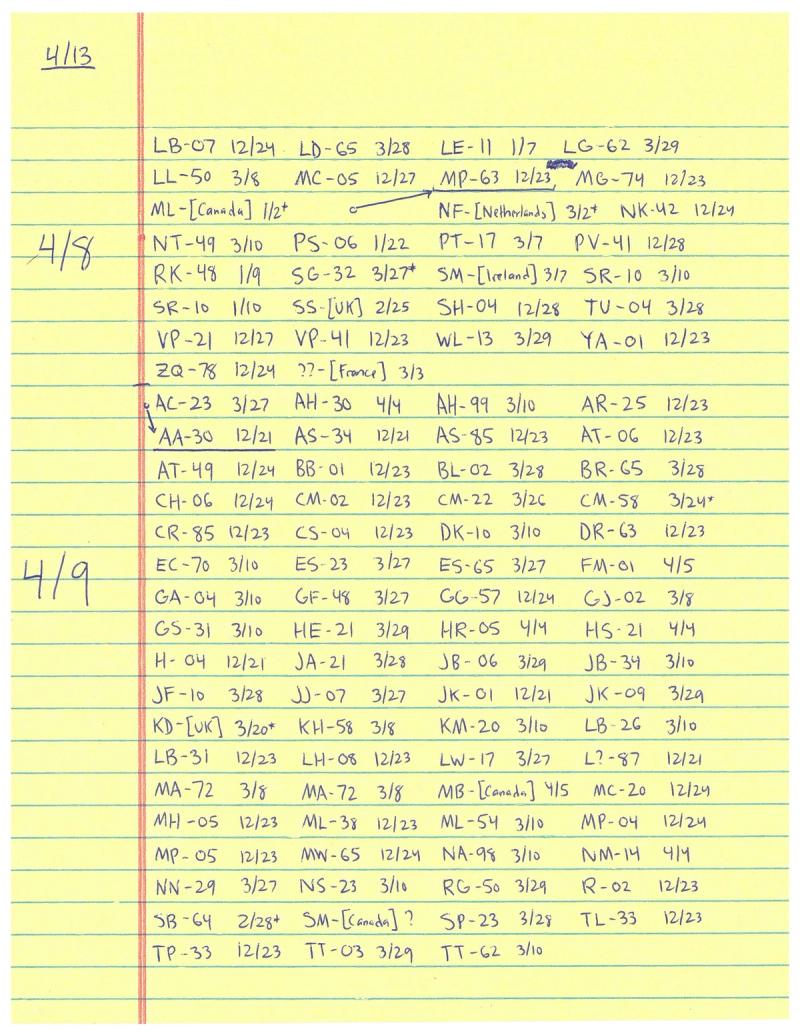 4/13
LB-07 12/24 LD-65 3/28 LE-11 1/7 LG-62 3/29
LL-50 3/8 MC-05 12/27 MP-63 12/23 MG-74 12/23
ML-[Canada] 1/2* NF-[Netherlands] 3/2* NK-42 12/24
4/8
NT-49 3/10 PS-06 1/22 PT-17 3/7 PV-41 12/28
RK-48 1/9 SG-32 3/27* SM-[Ireland] 3/7 SR-10 3/10
SR-10 1/10 SS-[UK] 2/25 SH-04 12/28 TV-04 3/28
VP-21 12/27 VP-41 12/23 WL-13 3/29 YA-01 12/23
ZQ-78 12/24 ??-[France] 3/3
AC-23 3/27 AH-30 4/4 AH-99 3/10 AR-25 12/23
AA-30 12/21 AS-34 12/21 AS-85 12/23 AT-06 12/23
AT-49 12/24 BB-01 12/23 BL-02 3/28 BR-65 3/28
CH-06 12/24 CM-02 12/23 CM-22 3/26 CM-58 3/24*
CR-85 12/23 CS-04 12/23 DK-10 3/10 DR-63 12/23
4/9
EC-70 3/10 ES-23 3/27 ES-65 3/27 FM-01 4/5
GA-04 3/10 GF-48 3/27 GG-57 12/24 GJ-02 3/8
GS-31 3/10 HE-21 3/29 HR-05 4/4 HS-21 4/4
H-04 12/21 JA-21 3/28 JB-06 3/29 JB-34 3/10
JF-10 3/28 JJ-07 3/27 JK-01 12/21 JK-09 3/29
KD-[UK] 3/20* KH-58 3/8 KM-20 3/10 LB-26 3/10
LB-31 12/23 LH-08 12/23 LW-17 3/27 L?-87 12/21
MA-72 3/8 MA-72 3/8 MB-[Canada] 4/5 MC-20 12/24
MH-05 12/23 ML-38 12/23 ML-54 3/10 MP-04 12/24
MP-05 12/23 MW-65 12/24 NA-98 3/10 NM-14 4/4
NN-29 3/27 NS-23 3/10 RG-50 3/29 R-02 12/23
SB-64 2/28* SM-[Canada] ? SP-23 3/28 TL-33 12/23
TP-33 12/23 TT-03 3/29 TT-62 3/10